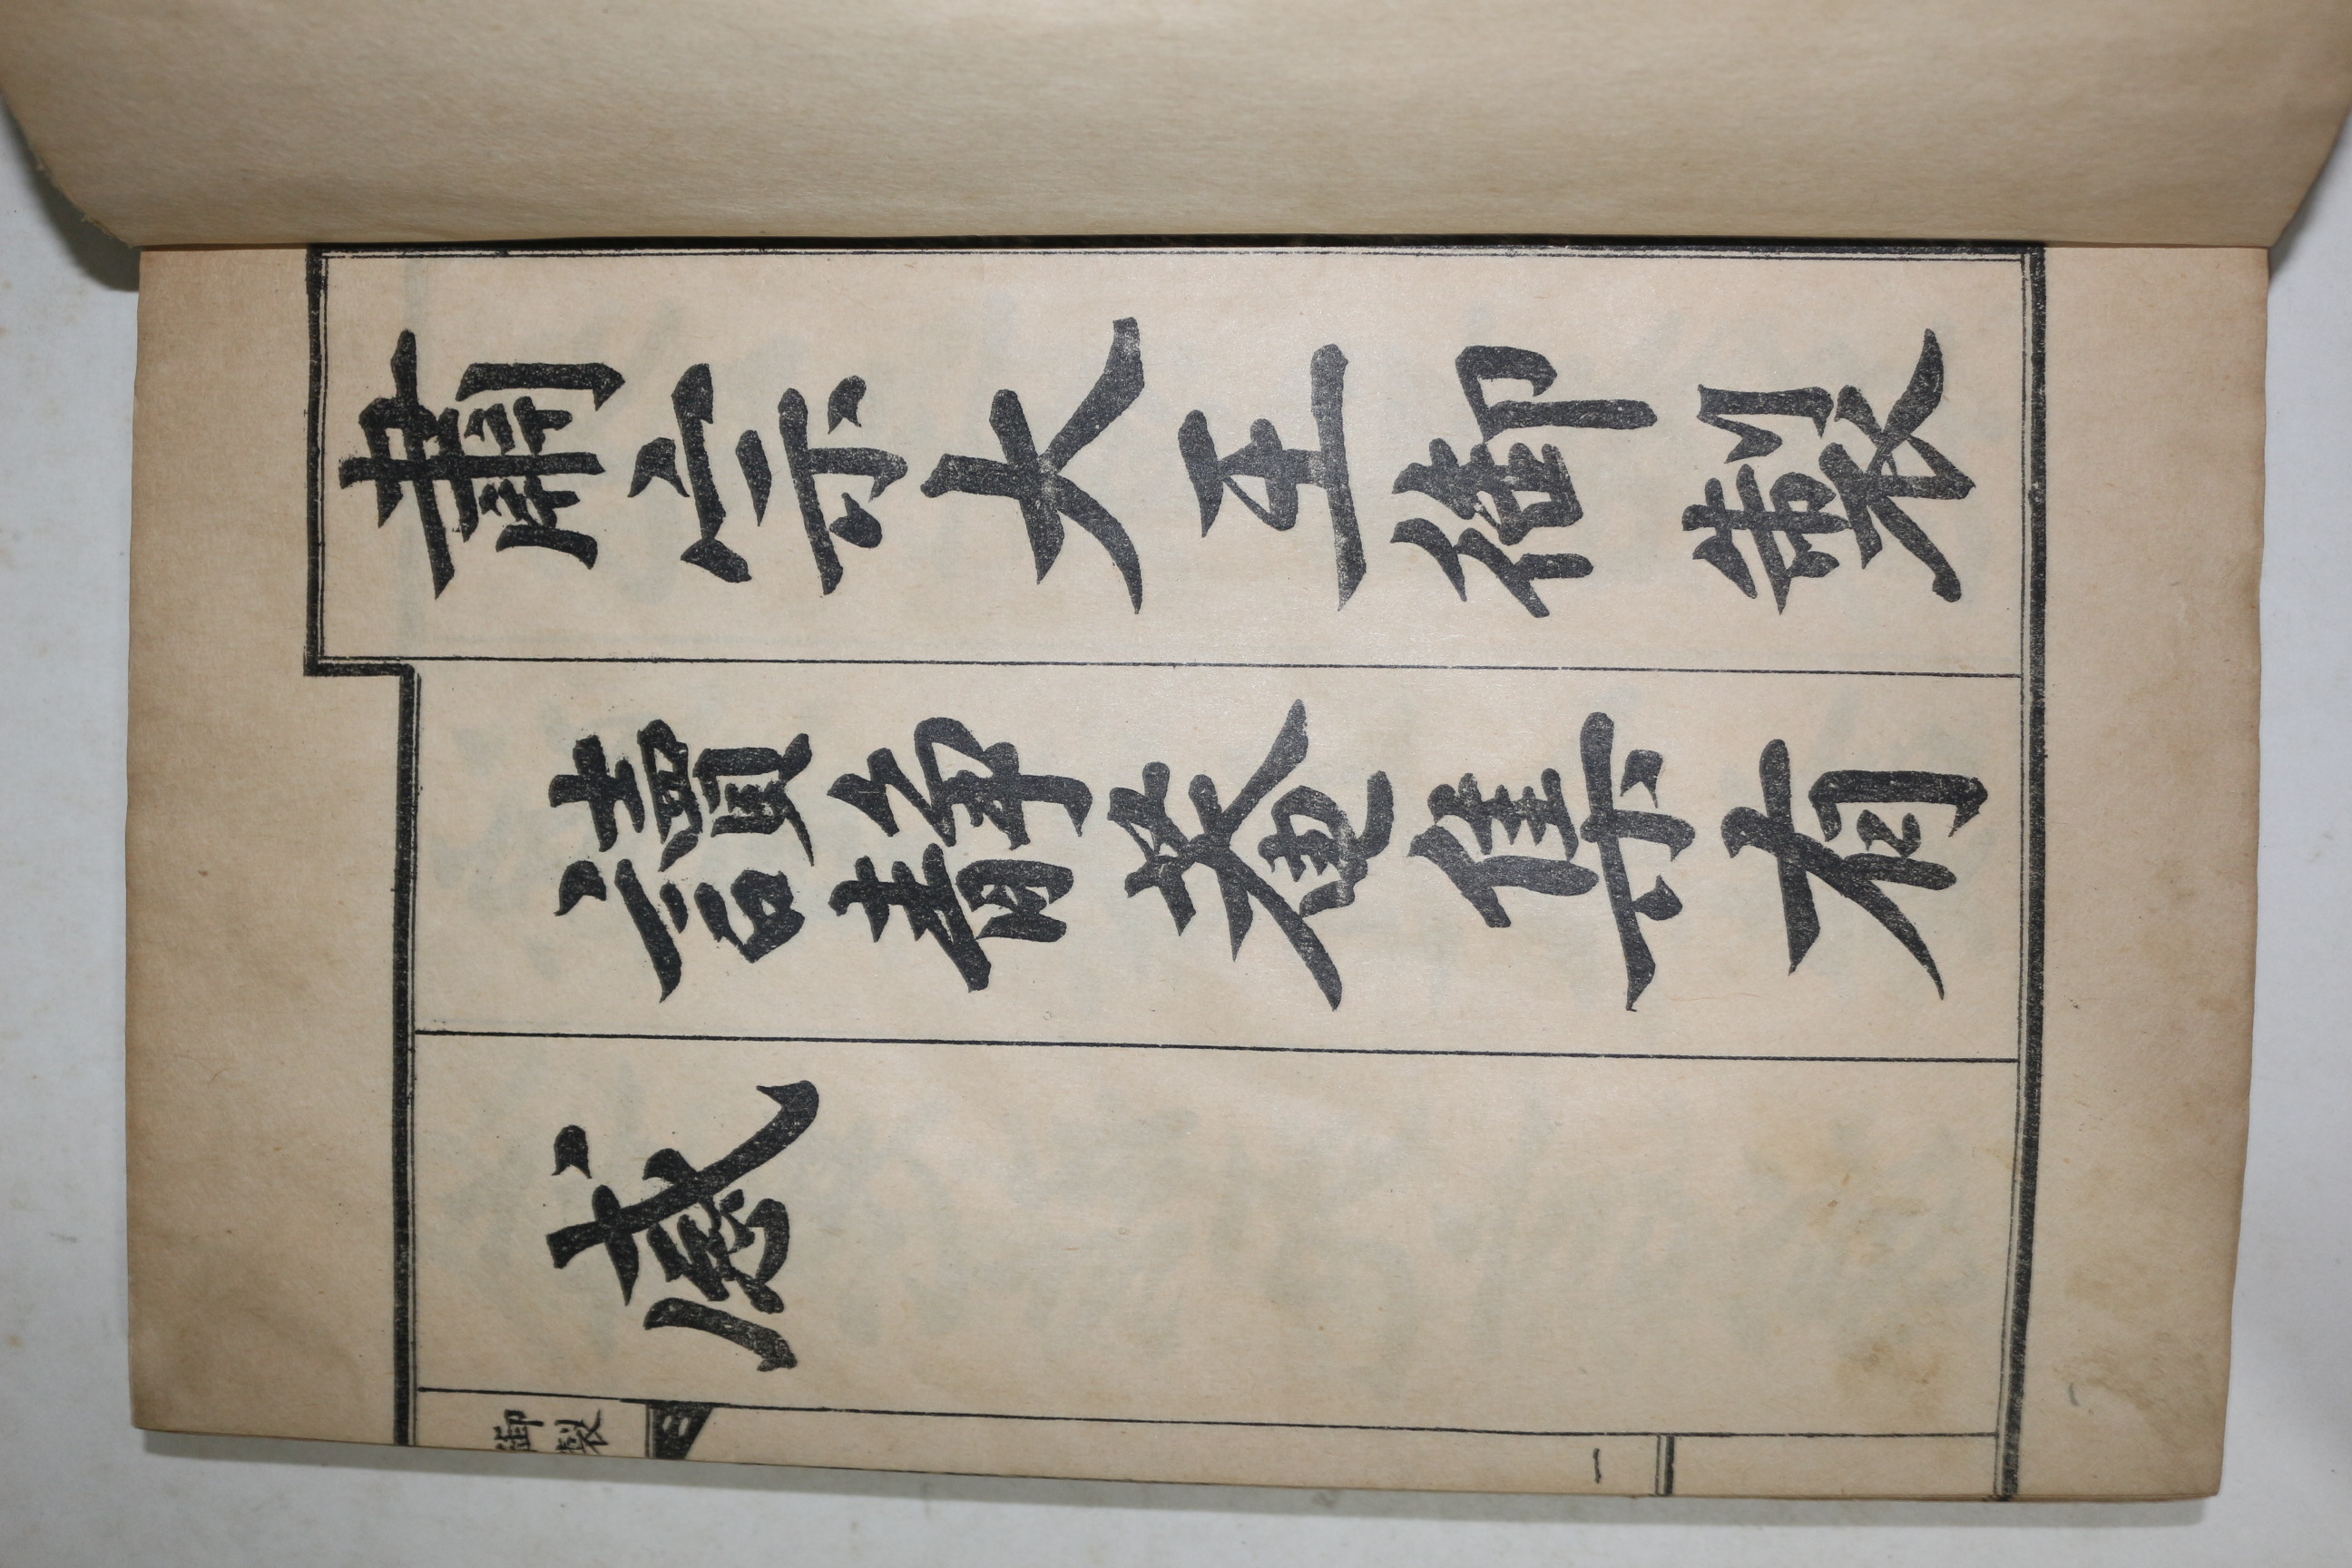 肅宗大王御製
讀靜菴集有
感
御製
一